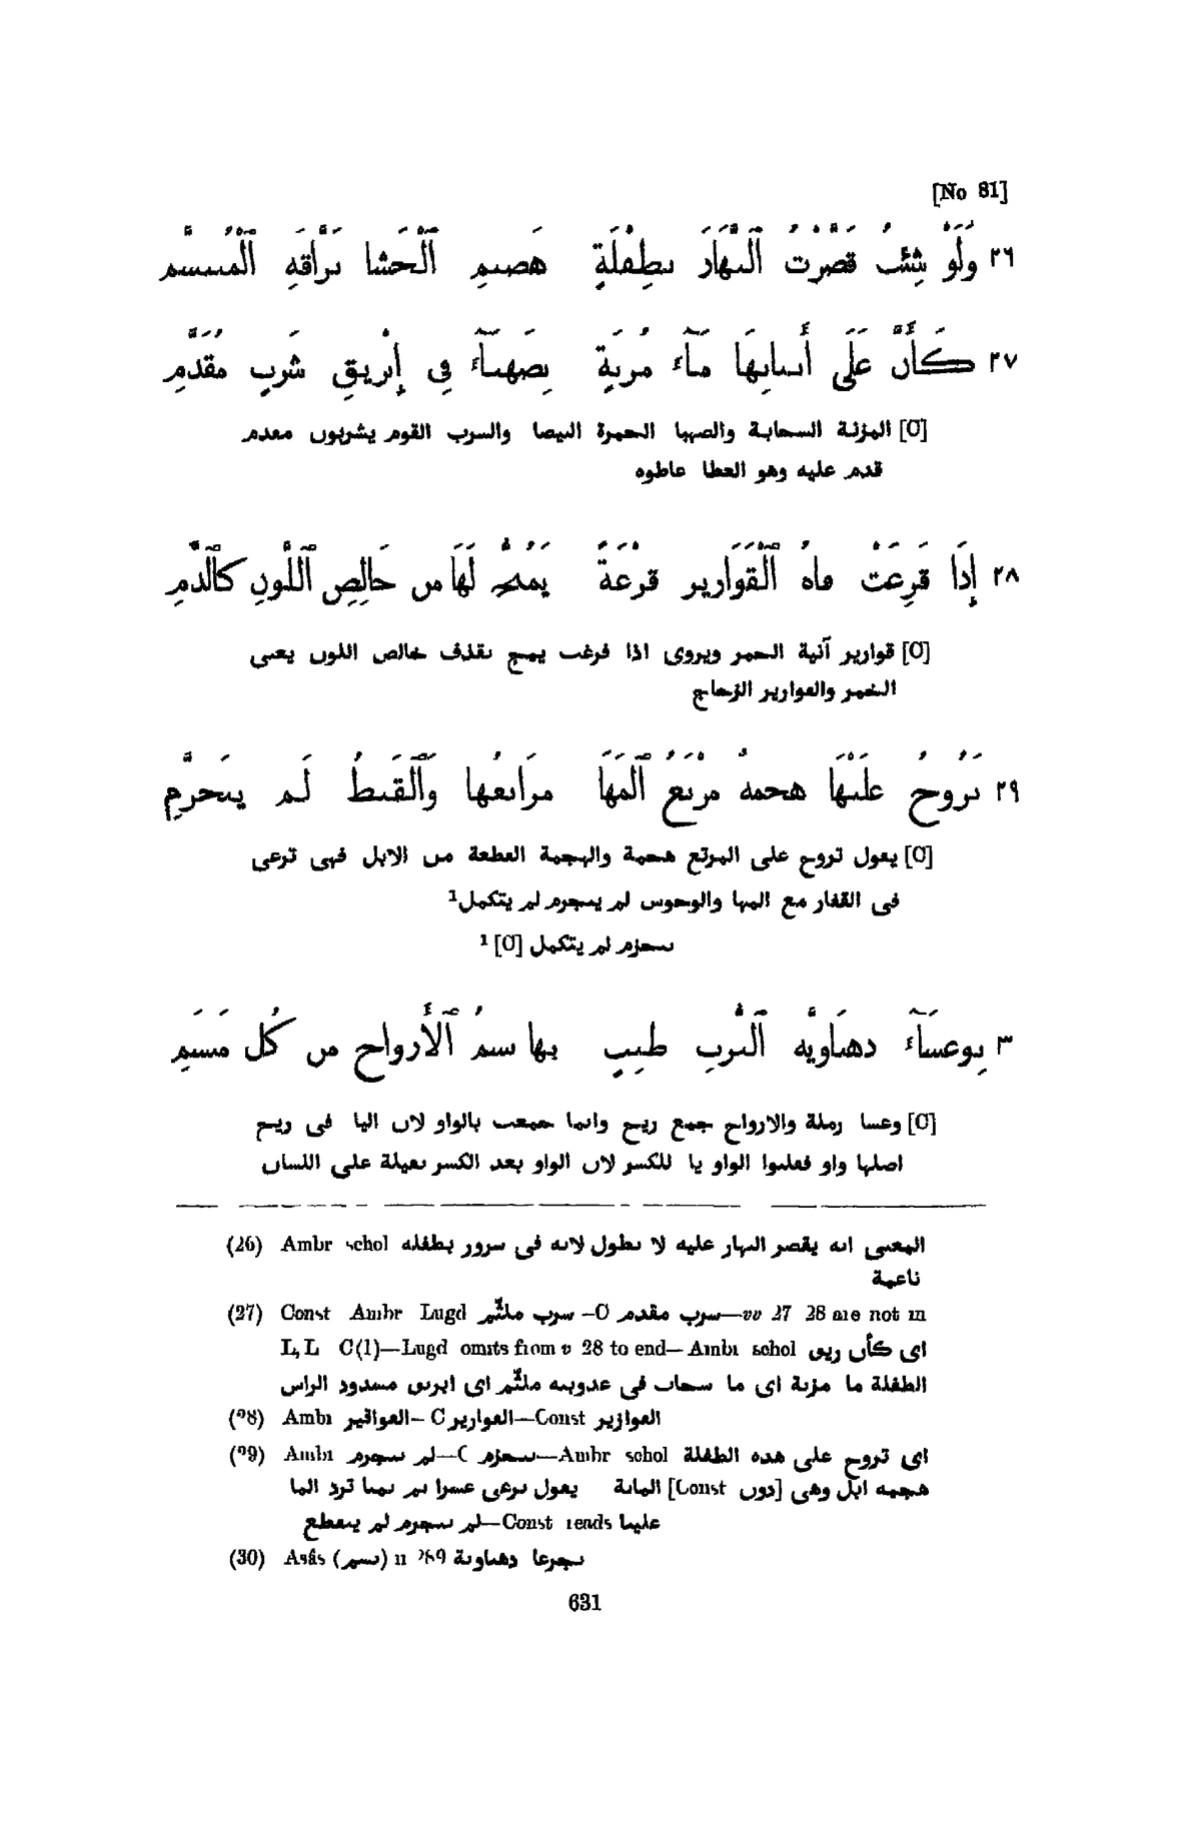 [No 81]
٢٦ وَلَوْ شِئْتُ قَصَّرْتُ ٱلنَّهَارَ بِطِفْلَةٍ هَضِيمِ ٱلْحَشَا بَرَّاقَةِ ٱلْمُتَبَسَّمِ
٢٧ كَأَنَّ عَلَى أَنْيَابِهَا مَآءَ مُزْنَةٍ بِصَهْبَآءَ فِي إِبْرِيقِ شَرْبٍ مُقَدَّمِ
[O] المزنة السحابة والصهبا الخمرة البيضا والشرب القوم يشربون مفدم
فدم عليه وهو الغطا غاطوه
٢٨ إِذَا قُرِعَتْ فَاهُ ٱلْقَوَارِيرِ قَرْعَةً يَمُجُّ لَهَا مِن خَالِصِ ٱللَّوْنِ كَٱلدَّمِ
[O] قوارير آنية الخمر ويروى اذا فرغت يمج تقذف خالص اللون يعنى
الخمر والقوارير الزجاج
٢٩ تَرُوحُ عَلَيْهَا هَجْمَةٌ مَرْتَعُ ٱلْمَهَا مَرَاتِعُهَا وَٱلْقَيْظُ لَم يَتَجَرَّمِ
[O] يقول تروح على المرتع هجمة والهجمة القطعة من الابل فهى ترعى
فى القفار مع المها والوحوش لم يتجرم لم يتكمل¹
¹ [O] يتجزم لم يتكمل
٣ بِوَعْسَآءَ دَهْنَاوِيَّةِ ٱلتُّرْبِ طَيِّبٍ بِهَا نَسَمُ ٱلْأَرْوَاحِ مِن كُلِّ مَنْسَمِ
[O] وعسا رملة والارواح جمع ريح وانما جمعت بالواو لان اليا فى ريح
اصلها واو فقلبوا الواو يا للكسر لان الواو بعد الكسر ثقيلة على اللسان
(26) Ambr schol المعنى انه يقصر النهار عليه لا يطول لانه فى سرور بطفلة
ناعمة
(27) Const Ambr Lugd شرب ملثّم –C شرب مقدم—vv 27 28 are not in
L, L C(1)—Lugd omits from v 28 to end—Ambr schol اى كأن ريق
الطفلة ما مزنة اى ما سحاب فى عذوبته ملثّم اى ابريق مسدود الراس
(28) Ambr العواقير– C القوارير—Const القوازير
(29) Ambr لم يتجرم—C يتجزم—Ambr schol اى تروح على هذه الطفلة
هجمه ابل وهى [دون Const] المانة يقول ترعى عشرا ثم تمنا ترد الما
علينا Const reads—لم يتجرم لم ينقطع
(30) Asâs (نسم) II 289 بجرعا دهناوية
631